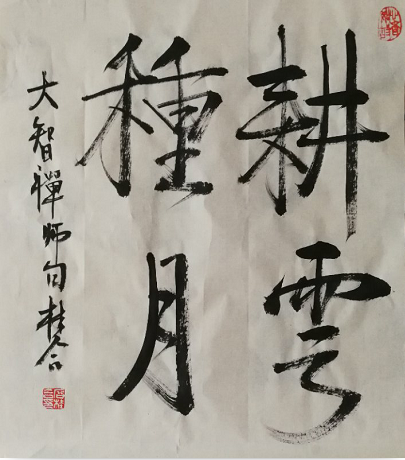 耕雲
種月
大智禪師句 桂合